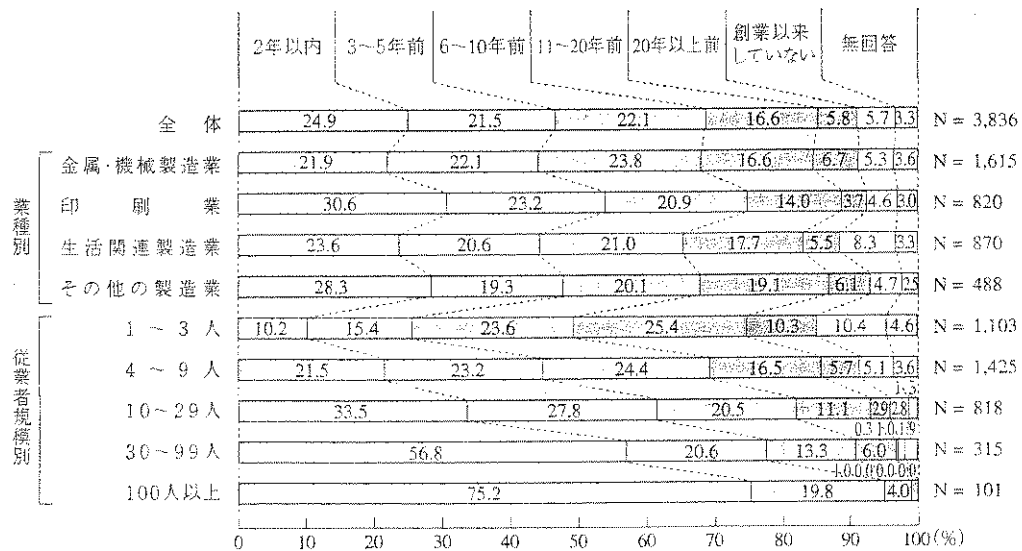 2年以内 3～5年前 6～10年前 11～20年前 20年以上前 創業以来していない 無回答
全体 24.9 21.5 22.1 16.6 5.8 5.7 3.3 N = 3,836
業種別
金属・機械製造業 21.9 22.1 23.8 16.6 6.7 5.3 3.6 N = 1,615
印刷業 30.6 23.2 20.9 14.0 3.7 4.6 3.0 N = 820
生活関連製造業 23.6 20.6 21.0 17.7 5.5 8.3 3.3 N = 870
その他の製造業 28.3 19.3 20.1 19.1 6.1 4.7 2.5 N = 488
従業者規模別
1～3人 10.2 15.4 23.6 25.4 10.3 10.4 4.6 N = 1,103
4～9人 21.5 23.2 24.4 16.5 5.7 5.1 3.6 N = 1,425
10～29人 33.5 27.8 20.5 11.1 2.9 2.8 N = 818
30～99人 56.8 20.6 13.3 6.0 N = 315
100人以上 75.2 19.8 4.0 N = 101
0 10 20 30 40 50 60 70 80 90 100(%)